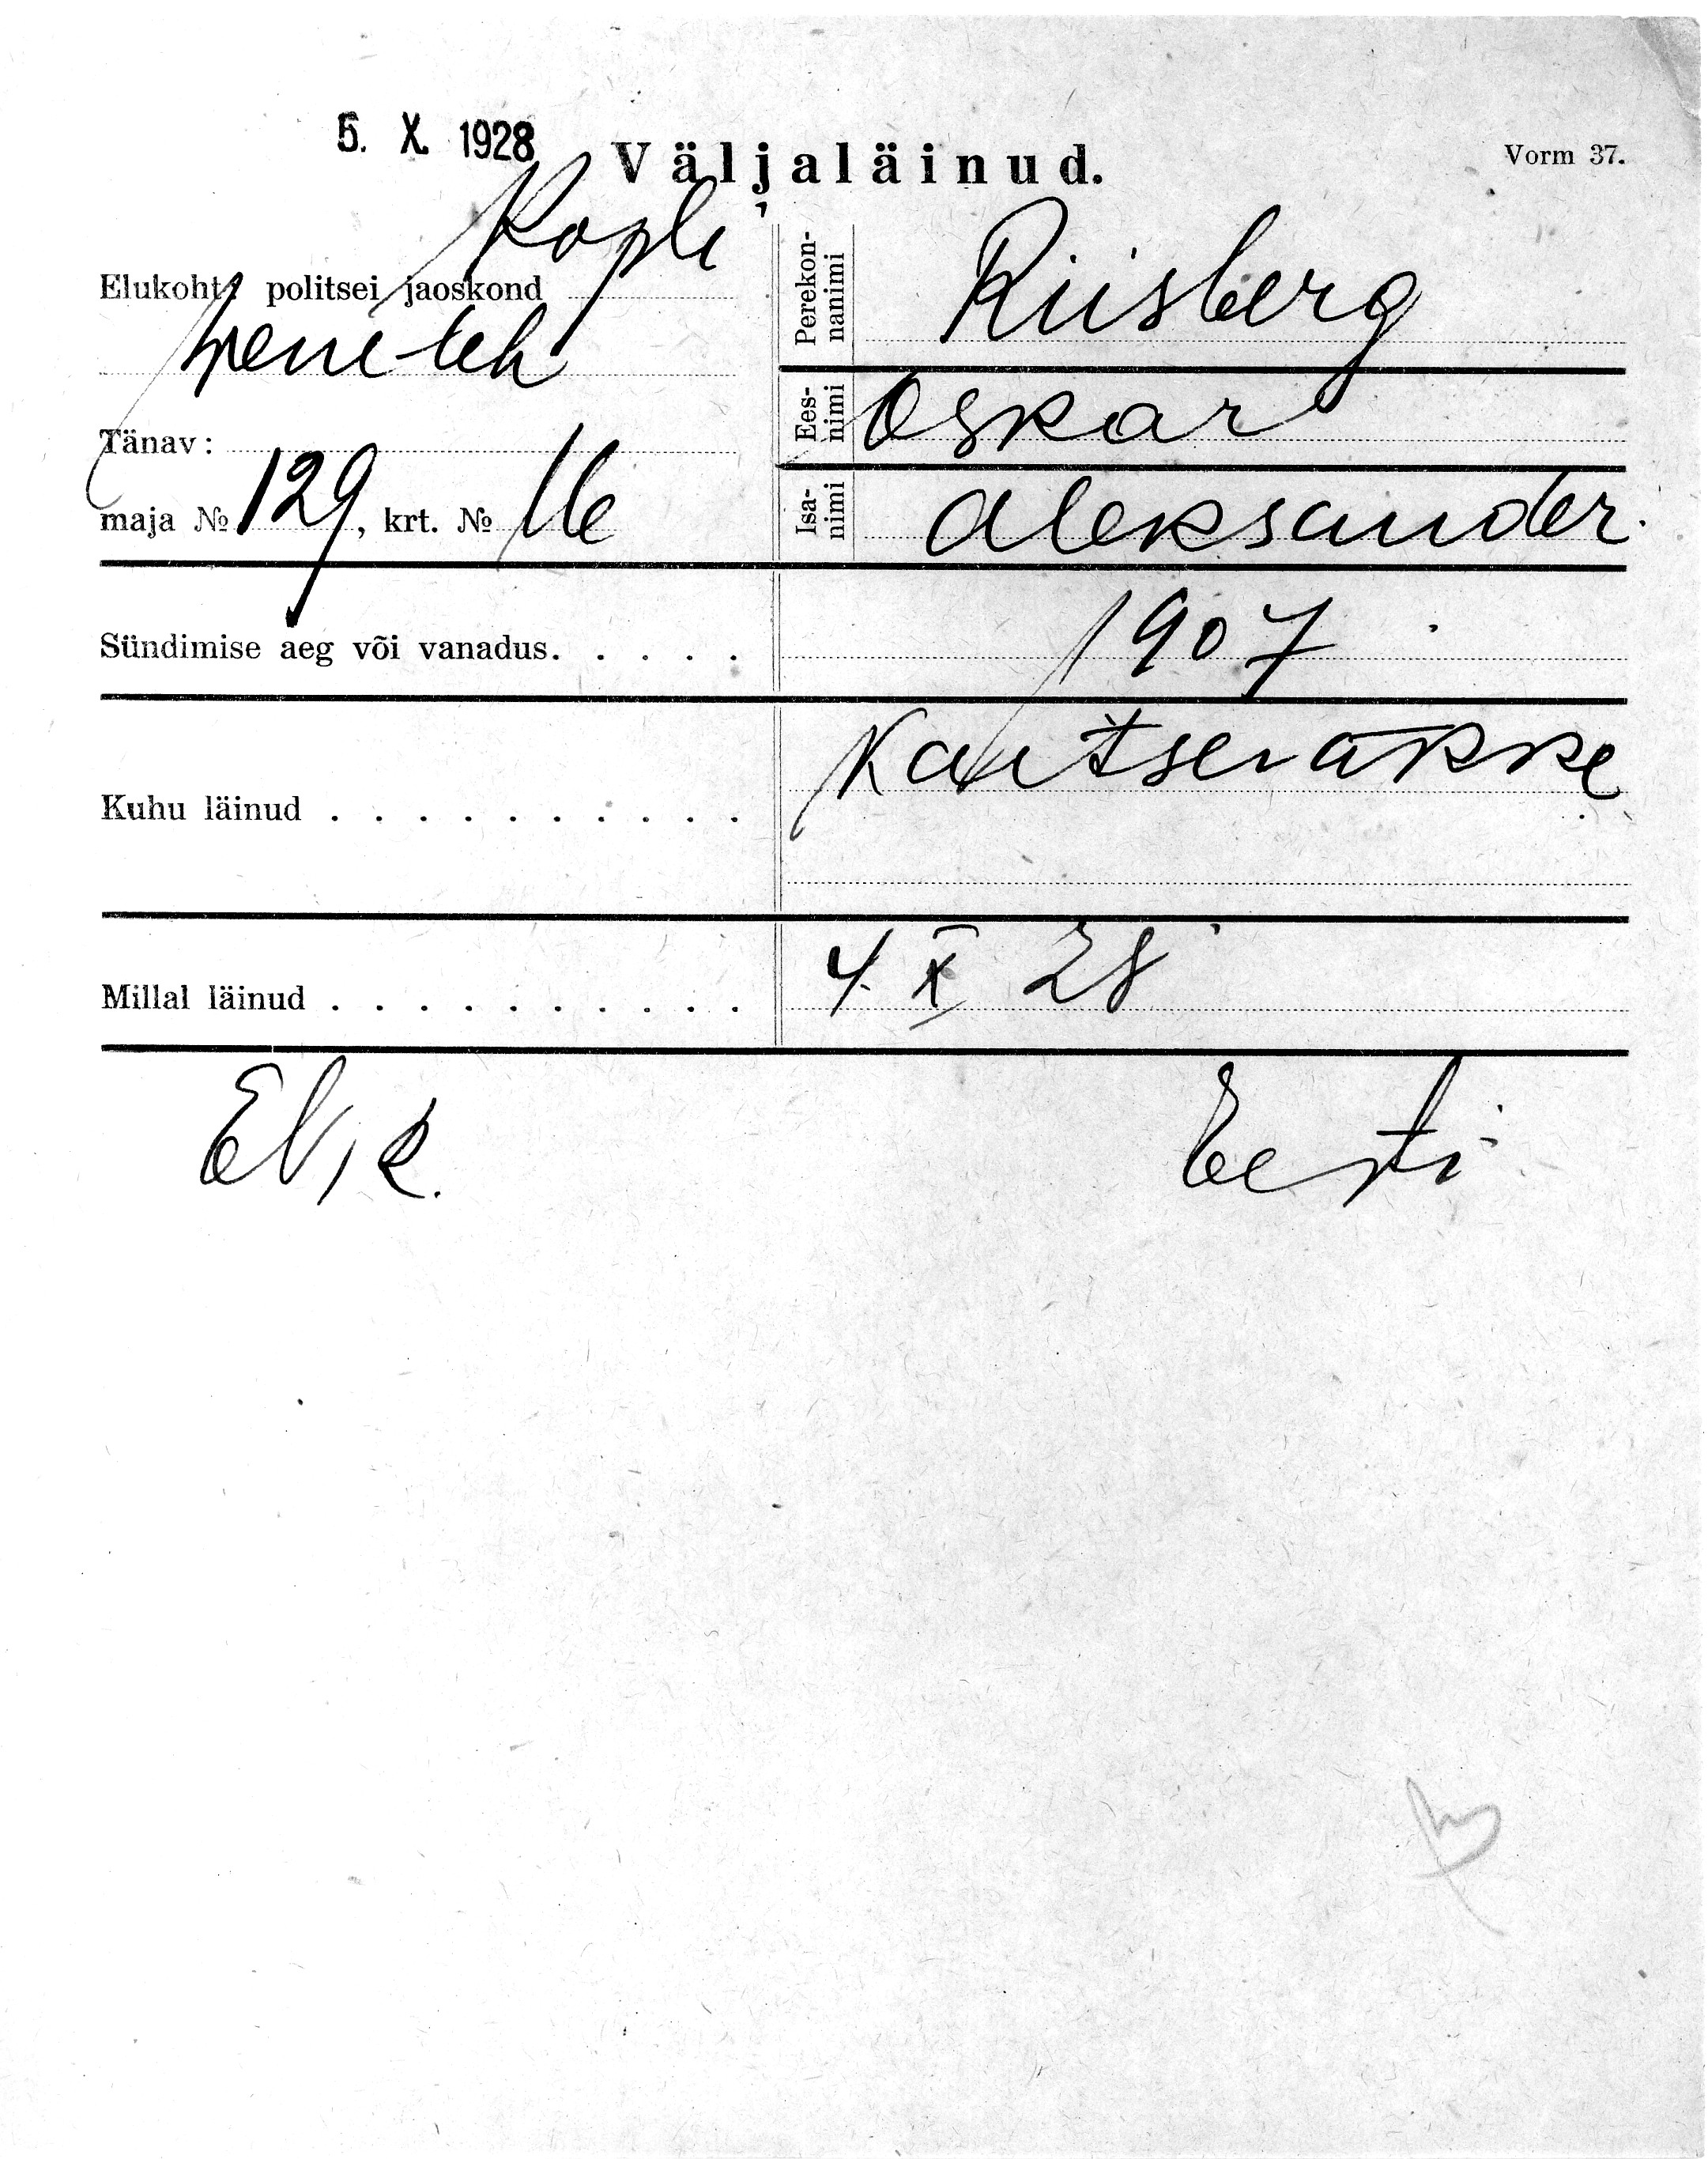 5. X. 1928
Väljaläinud.
Vorm 37.
Kopli
Elukoht: politsei jaoskond
Vene-teh
Tänav:
maja № 129, krt. № 16
Perekonnanimi
Riisberg
Ees-nimi
Oskar
Isa-nimi
Aleksander.
Sündimise aeg või vanadus. . . . .
1907
Kuhu läinud . . . . . . . . . .
Millal läinud . . . . . . . . . .
4. X 28
Eesti